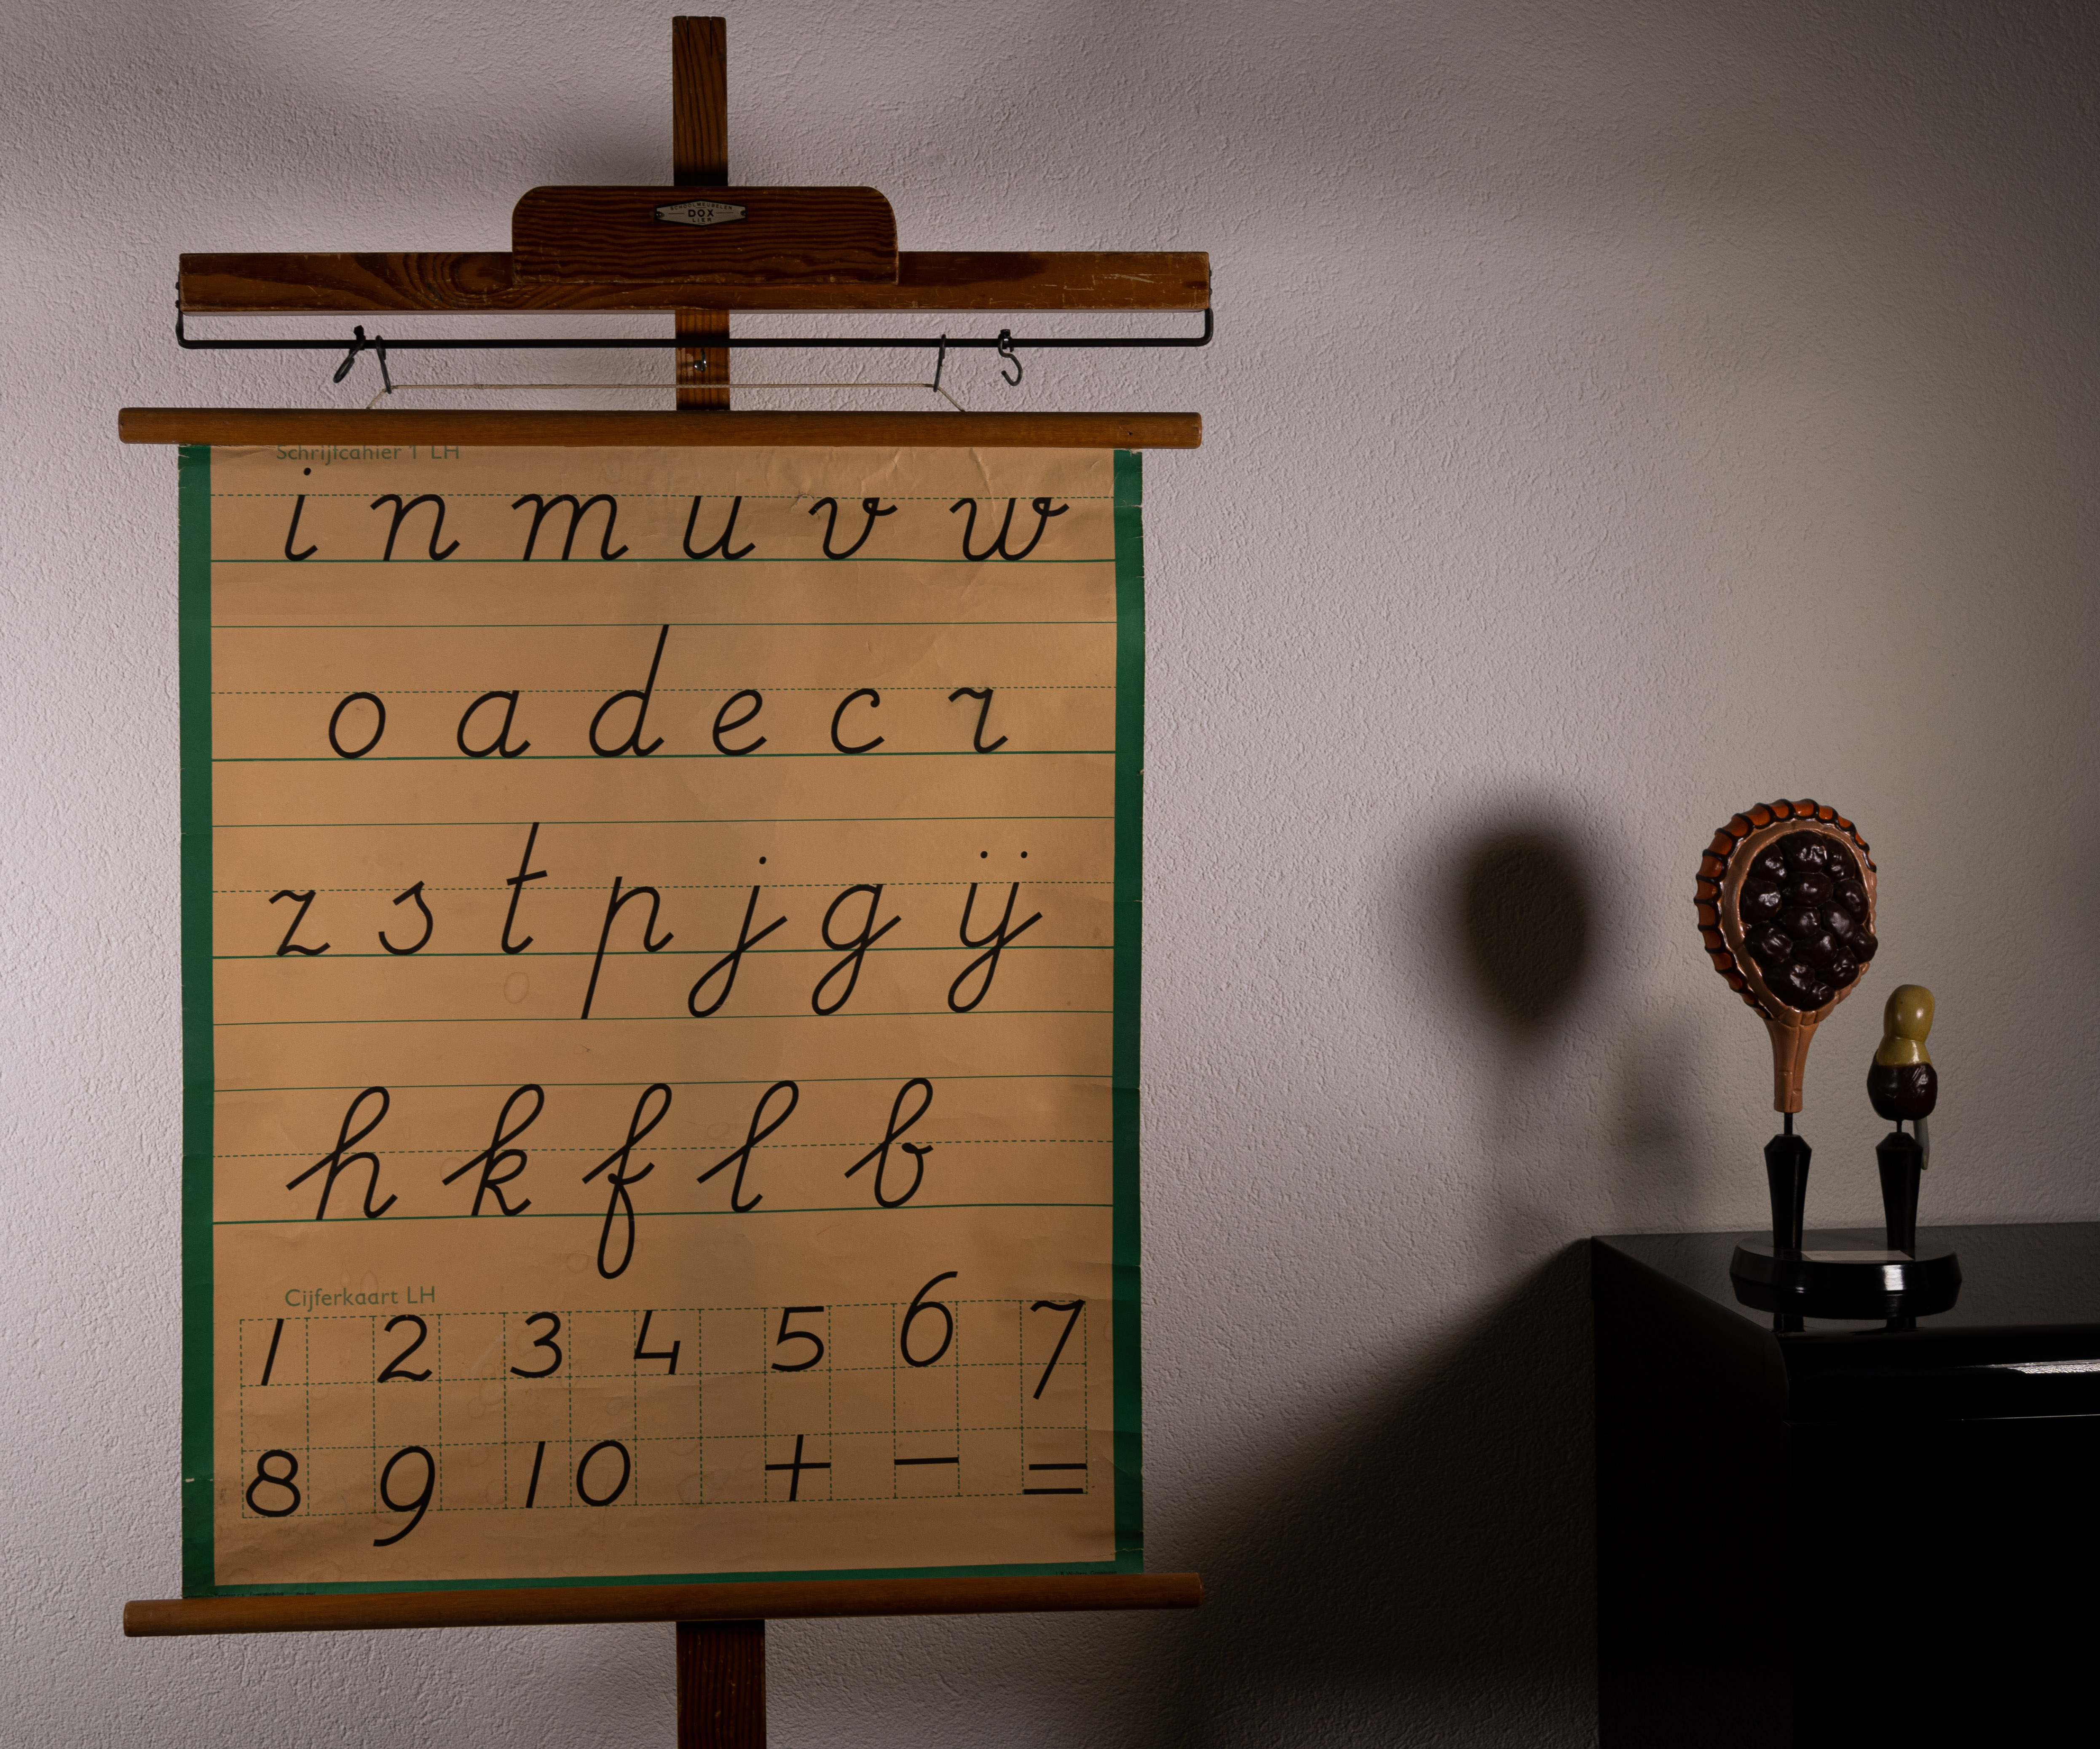 SCHOOLMEUBELEN
DOX
LIER
Schrijfcahier 1 LH
i n m u v w
o a d e c r
z s t p j g ij
h k f l b
Cijferkaart LH
1 2 3 4 5 6 7
8 9 10 + − =